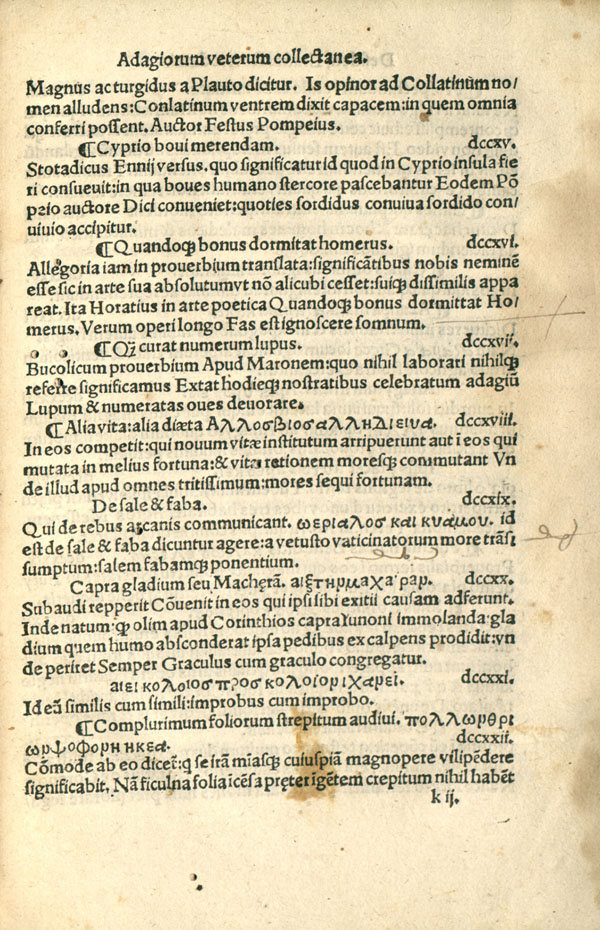 Adagiorum veterum collectanea.
Magnus ac turgidus a Plauto dicitur. Is opinor ad Collatinũm no/
men alludens: Conlatinum ventrem dixit capacem: in quem omnia
conferri possent. Auctor Festus Pompeius.
¶Cyprio boui merendam. dccxv.
Stotadicus Ennij versus. quo significatur id quod in Cyprio insula fie
ri consueuit: in qua boues humano stercore pascebantur Eodem Põ
pɀio auctore Dici conueniet: quoties sordidus conuiua sordido con/
uiuio accipitur.
¶Quandoqꝫ bonus dormitat homerus. dccxvi.
Allegoria iam in prouerbium translata: significãtibus nobis neminẽ
esse sic in arte sua absolutumvt nõ alicubi cesset: suiqꝫ dissimilis appa
reat. Ita Horatius in arte poetica Quandoqꝫ bonus dormittat Ho/
merus. Verum operi longo Fas est ignoscere somnum.
¶Qꝫ curat numerum lupus. dccxvii.
Bucolicum prouerbium Apud Maronem: quo nihil laborari nihilqꝫ
referre significamus Extat hodieqꝫ nostratibus celebratum adagiũ
Lupum & numeratas oues deuorare.
¶Alia vita: alia diæta Αλλοσβιοσαλλη διειυα. dccxviii.
In eos competit: qui nouum vitæ institutum arripuerunt aut ĩ eos qui
mutata in melius fortuna: & vitæ rationem moresqꝫ commutant Vn
de illud apud omnes tritissimum: mores sequi fortunam.
De sale & faba. dccxix.
Qui de rebus arcanis communicant. ωεριαλοσ και κυαμου. id
est de sale & faba dicuntur agere: a vetusto vaticinatorum more trãsi
sumptum: salem fabamqꝫ ponentium.
Capra gladium seu Machęrã. αιξτημμαχαιραμ. dccxx.
Subaudi repperit Cõuenit in eos qui ipsi sibi exitii causam adferunt.
Inde natum· ꝙ olim apud Corinthios capra Iunoni immolanda· gla
dium quem humo absconderat ipsa pedibus excalpens prodidit: vn
de periret Semper Graculus cum graculo congregatur.
αιει κολοιοσ προσ κολοιομιχαμει. dccxxi.
Id eã similis cum simili: improbus cum improbo.
¶Complurimum foliorum strepitum audiui. πολλωμθρι
ωμψοφομηηκεα. dccxxii.
Cõmode ab eo dicet̃: q se irã mĩasqꝫ cuiuspiã magnopere vilipẽdere
significabit. Nã ficulna folia ĩcẽsa pręter ĩgẽtem crepitum nihil habẽt
k ij.